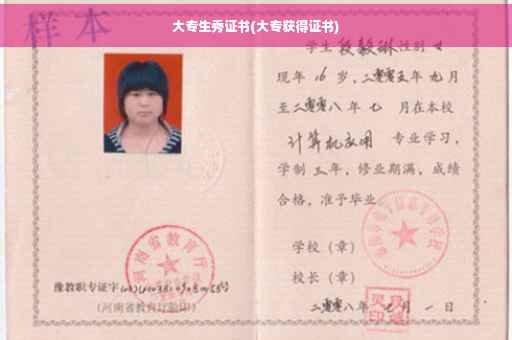 大专生秀证书(大专获得证书)
样本
学生段毅琳性别女
现年16岁,二零零五年九月
至二零零八年七 月在本校
计算机应用 专业学习,
学制三年,修业期满,成绩
合格,准予毕业
学校(章)
校长(章)
二零零八年七月一日
河南省教育厅
豫教职专证字
(河南省教育厅验印)